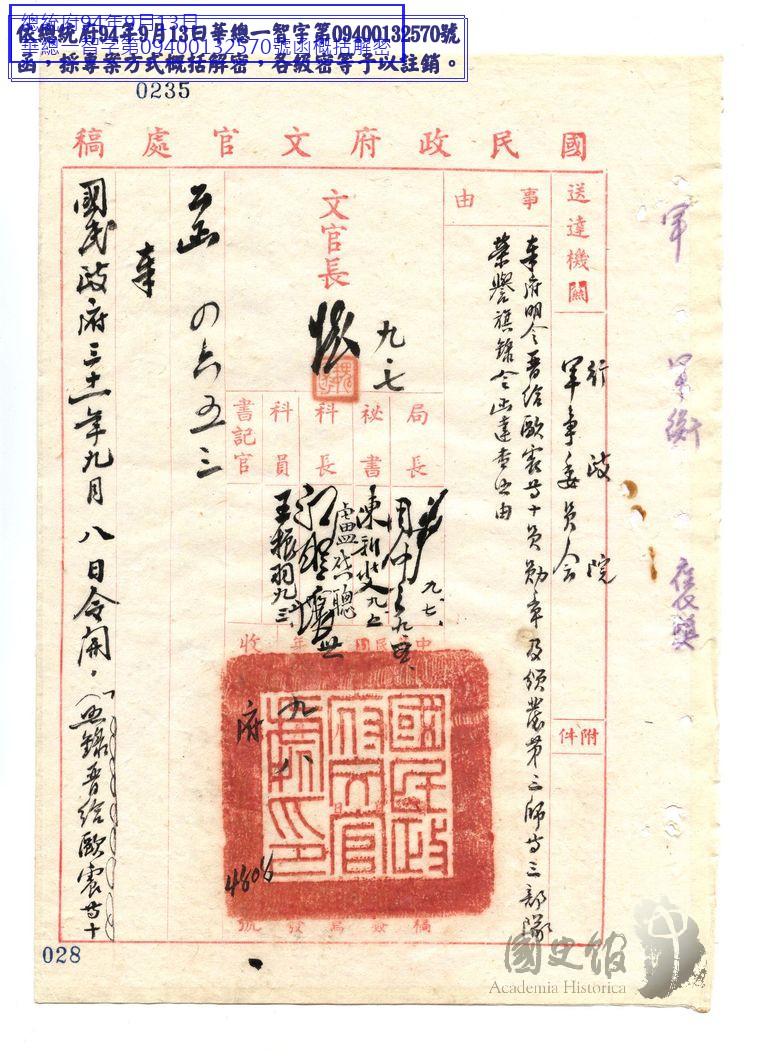 總統府94年9月13日
華總一智字第09400132570號函概括解密
依總統府94年9月13日華總一智字第09400132570號
函，採專案方式概括解密，各級密等予以註銷。
0235
國民政府文官處稿
軍 軍衡 褒獎
送達機關
行政院
軍事委員會
附件
事由
奉府明令晉給歐震等十員勛章及頒發第三師等三部隊
榮譽旗錄令函達查照由
文官長
九.七
局長
秘書
科長
科員
書記官
九.七.
王振羽九.三
國民政府文官處印
府
九 八
4606
公函
四六五三
奉
國民政府三十一年九月八日令開，「照錄晉給歐震等十
028
國史館
Academia Historica